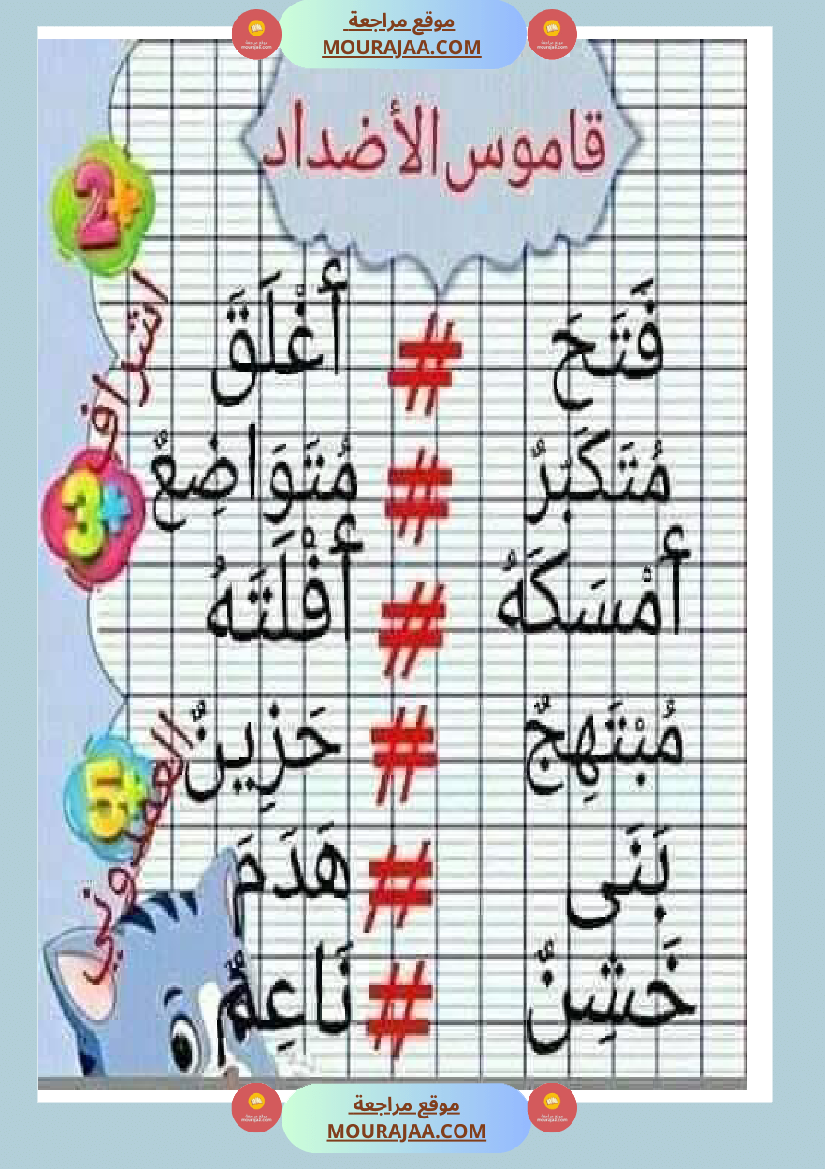 موقع مراجعة
MOURAJAA.COM
قاموس الأضداد
فَتَحَ # أَغْلَقَ
مُتَكَبِّرٌ # مُتَوَاضِعٌ
أَمْسَكَهُ # أَفْلَتَهُ
مُبْتَهِجٌ # حَزِينٌ
بَنَى # هَدَمَ
خَشِنٌ # نَاعِمٌ
2+
اشراف
3+
5+
العمدوني
موقع مراجعة
MOURAJAA.COM